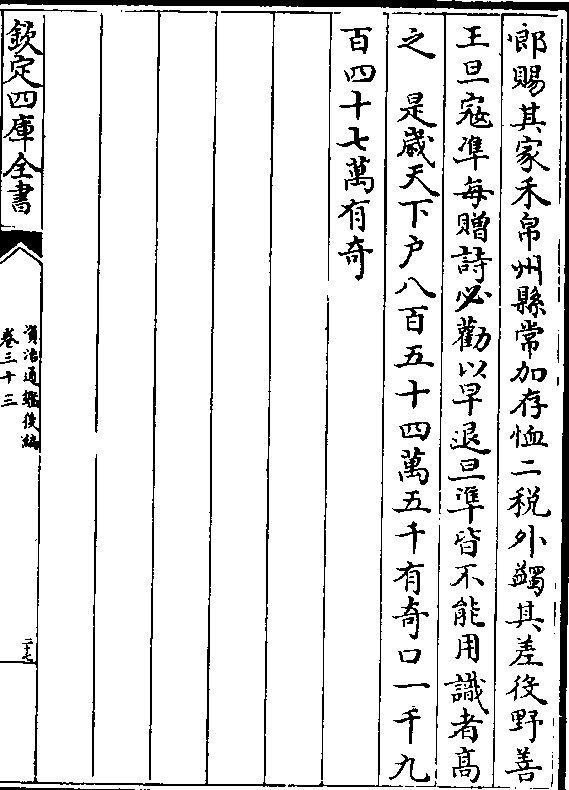 郎賜其家禾帛州縣常加存恤二税外蠲其差役野善
王旦宼準每贈詩必勸以早退旦準皆不能用識者髙
之　是嵗天下户八百五十四萬五千有奇口一千九
百四十七萬有奇
欽定四庫全書
資治通鑑後編
卷三十三
二十七